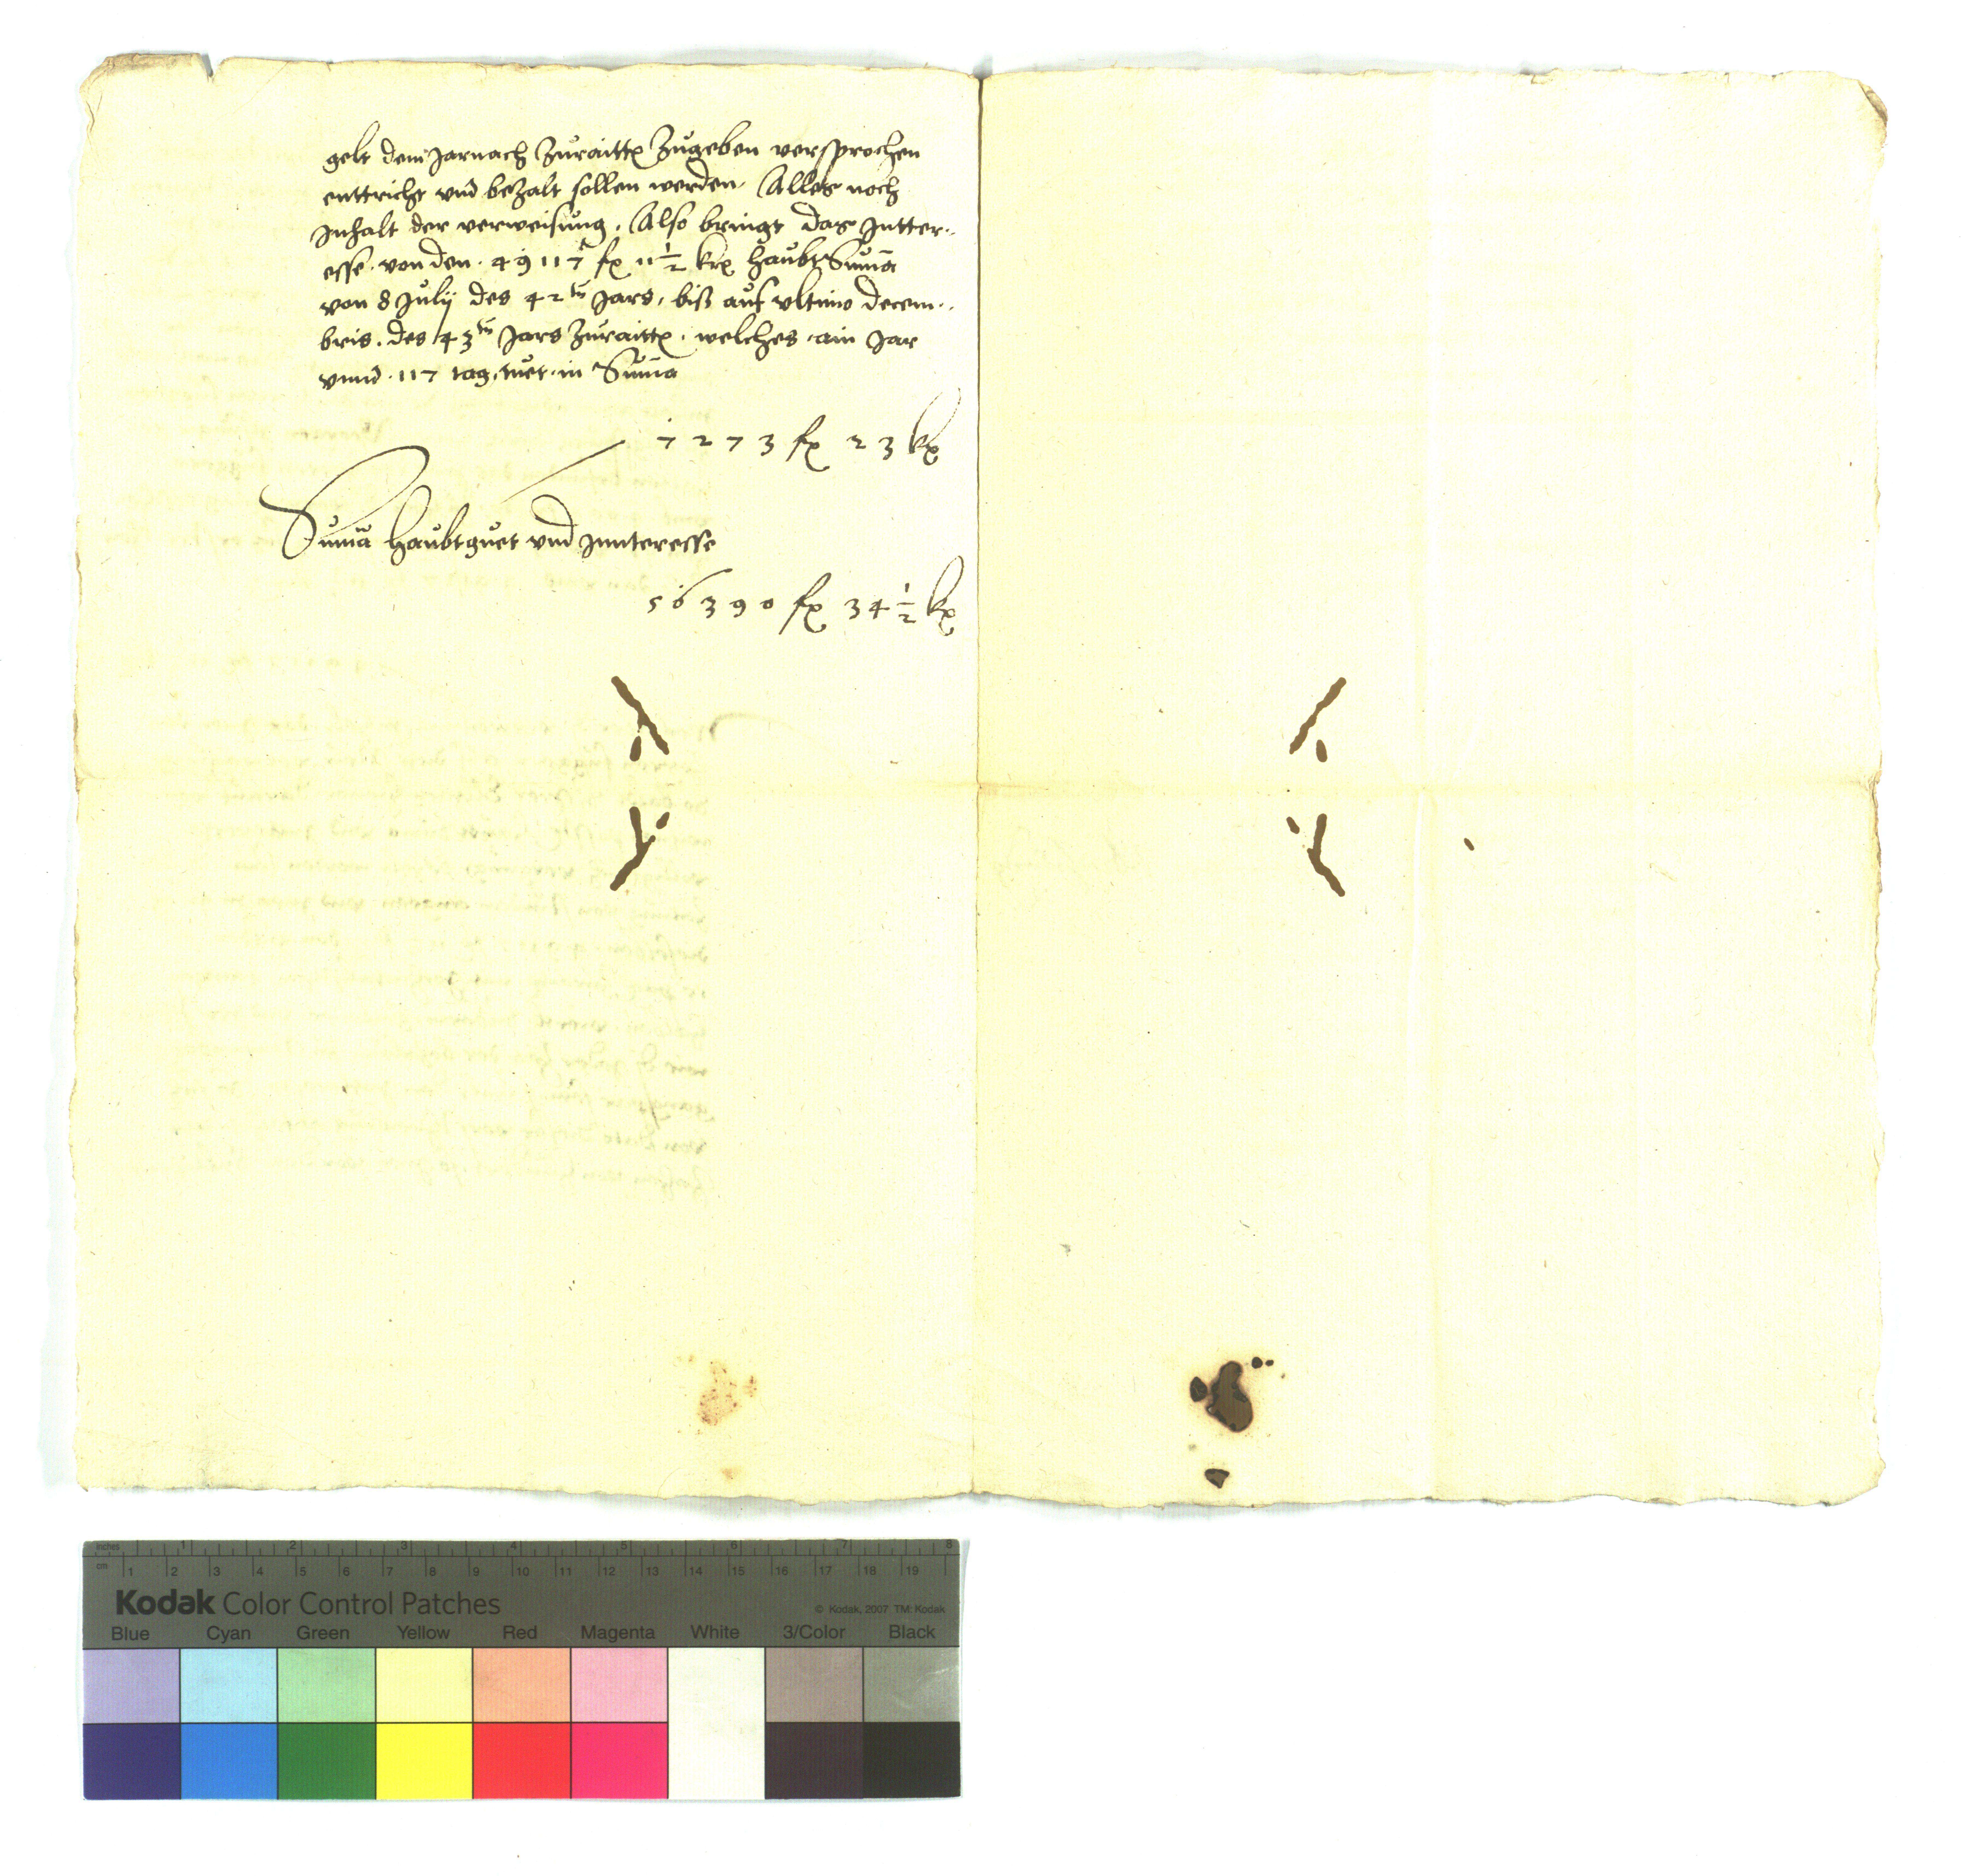 gelt dem Jarnach Zuraitten Zugeben versprochen
enttricht vnd bezalt sollen werden. Alles noch
Inhalt der verweisung. Also bringt das Intter¬
esse. von den. 49117 fl 11 1/2 krx haubt Suma
von 8 Julij des 42ten Jars, biß auf vltimo decem¬
bris. des 43ten Jars Zuraitten. welches ain Jar
vnnd. 117 tag, tuet. in Suma
7273 fl 23 kr
Suma haubtguet vnd Innteresse
56390 fl 34 1/2 kr
inches 1 2 3 4 5 6 7 8
cm 1 2 3 4 5 6 7 8 9 10 11 12 13 14 15 16 17 18 19
Kodak Color Control Patches
© Kodak, 2007 TM: Kodak
Blue Cyan Green Yellow Red Magenta White 3/Color Black